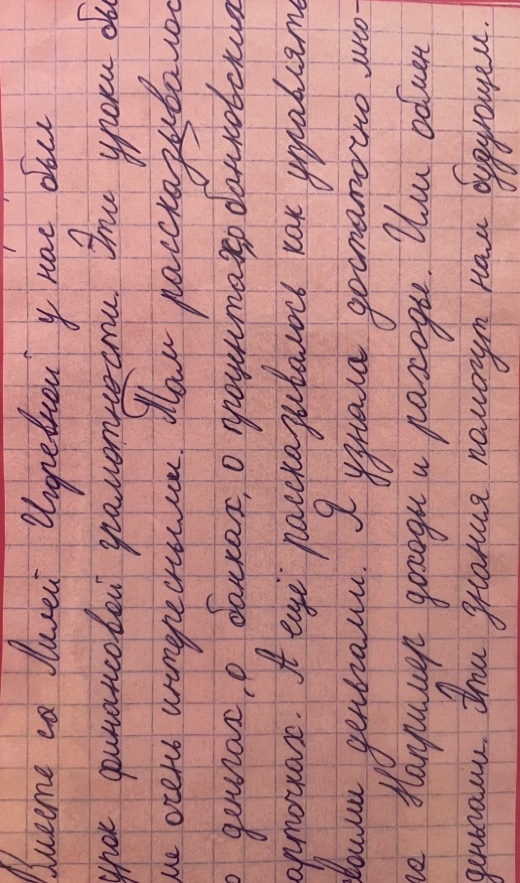 Вместе со Лилей Игоревной у нас был
урок финансовой грамотности. Эти уроки бы
ле очень интересными. Там рассказывалос
о деньгах, о банках, о процентах, о банковских
арточках. А ещё рассказывалось как управлять
воими деньгами. Я узнала достаточно мно-
го Например доходы и раходы. Или обмен
деньгами. Эти знания помогут нам будующем.